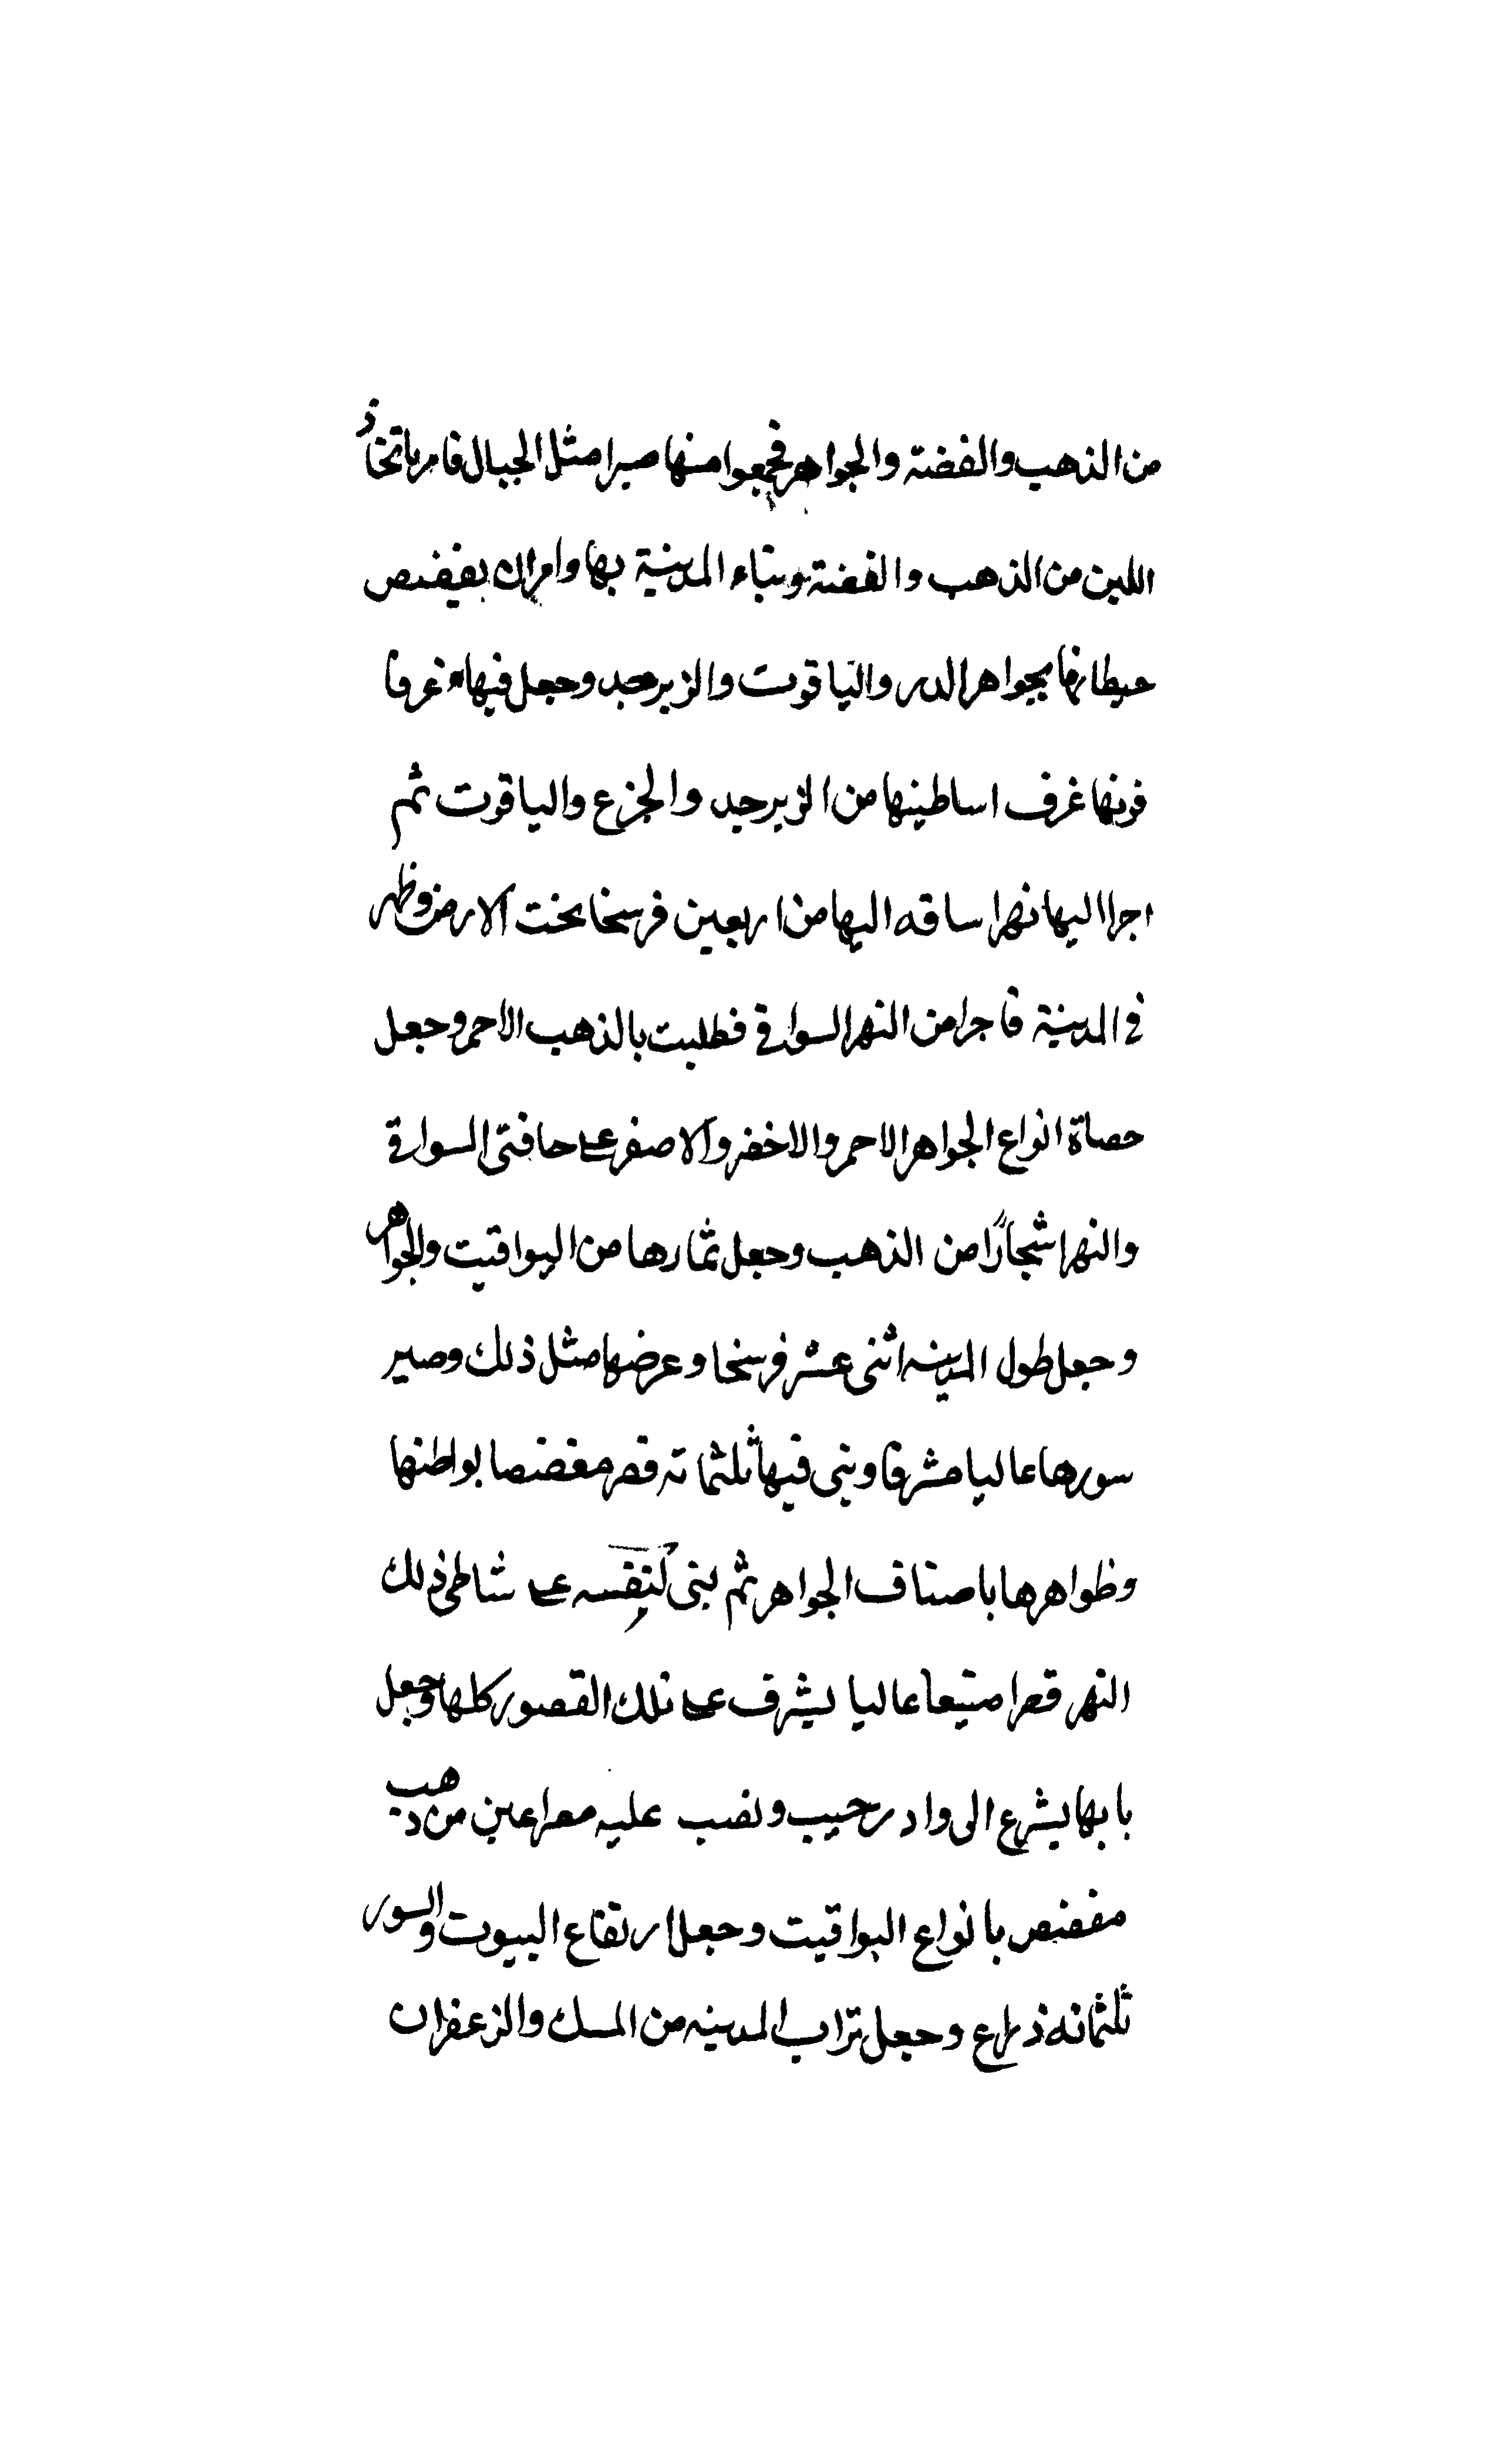 من الذهب والفضة والجواهر فجمعوا منها صبرا مثل الجبال فامر باتخاذ
اللبن من الذهب والفضة وبناء المدينة بها وامر ان يفضض
حيطانها بجواهر الدر والياقوت والزبرجد وجعل فيها غرفا
فوقها غرف اساطينها من الزبرجد والجزع والياقوت ثم
اجرا اليها نهرا ساقه اليها من اربعين فرسخا تحت الارض وظهر
في المدينة فاجرا من النهر السواقي فطليت بالذهب الاحمر وجعل
حصاة انواع الجواهر الاحمر والاخضر والاصفر على حافتي السواقي
والنهر اشجارًا من الذهب وجعل ثمارها من اليواقيت والجواهر
وجعل طول المدينه اثنى عشر فرسخا وعرضها مثل ذلك وصير
سورها عاليا مشرفا وبنى فيها ثلثمائه قصر مفضضا بواطنها
وظواهرها باصناف الجواهر ثم بنى لنفسه على شاطى ذلك
النهر قصرا منيعا عاليا يشرف على تلك القصور كلها وجعل
بابها يشرع الى واد رحيب ونصب عليه مصراعين من ذهب
مفضض بانواع اليواقيت وجعل ارتفاع البيوت والسور
ثلثمائه ذراع وجعل تراب المدينه من المسك والزعفران